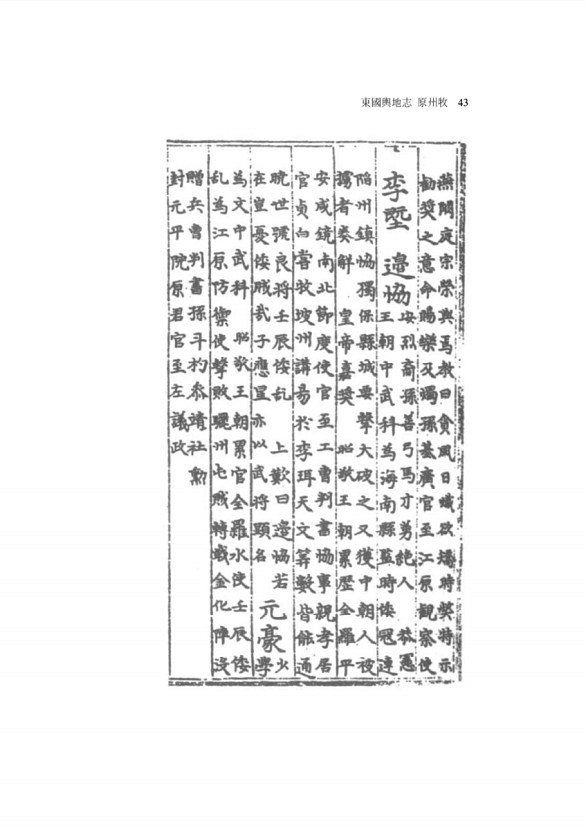 東國輿地志 原州牧 43
燕閒庭宗榮與焉敎曰貪風日熾欲矯時弊特示
勸奬之意命賜樂又蠲孫基廣官至江原觀察使
李塈 邊協
安烈裔孫善弓馬才勇絶人 恭憲
王朝中武科爲海南縣監時倭寇連
陷州鎭協獨保縣城要擊大破之又獲中朝人被
擄者奏解 皇帝嘉奬 昭敬王朝累歷全羅平
安咸鏡南北節度使官至工曹判書協事親孝居
官貞白嘗牧坡州講易於李珥天文筭數皆能通
晩世號良將壬辰倭乱 上歎曰邊協若
在豈憂倭賊哉子應星亦以武將顯名
元豪
少
學
爲文中武科 昭敬王朝累官全羅水使壬辰倭
乱爲江原防禦使擊敗驪州屯賊轉戰金化陣沒
贈兵曹判書孫斗杓參靖社勳
封元平院原君官至左議政